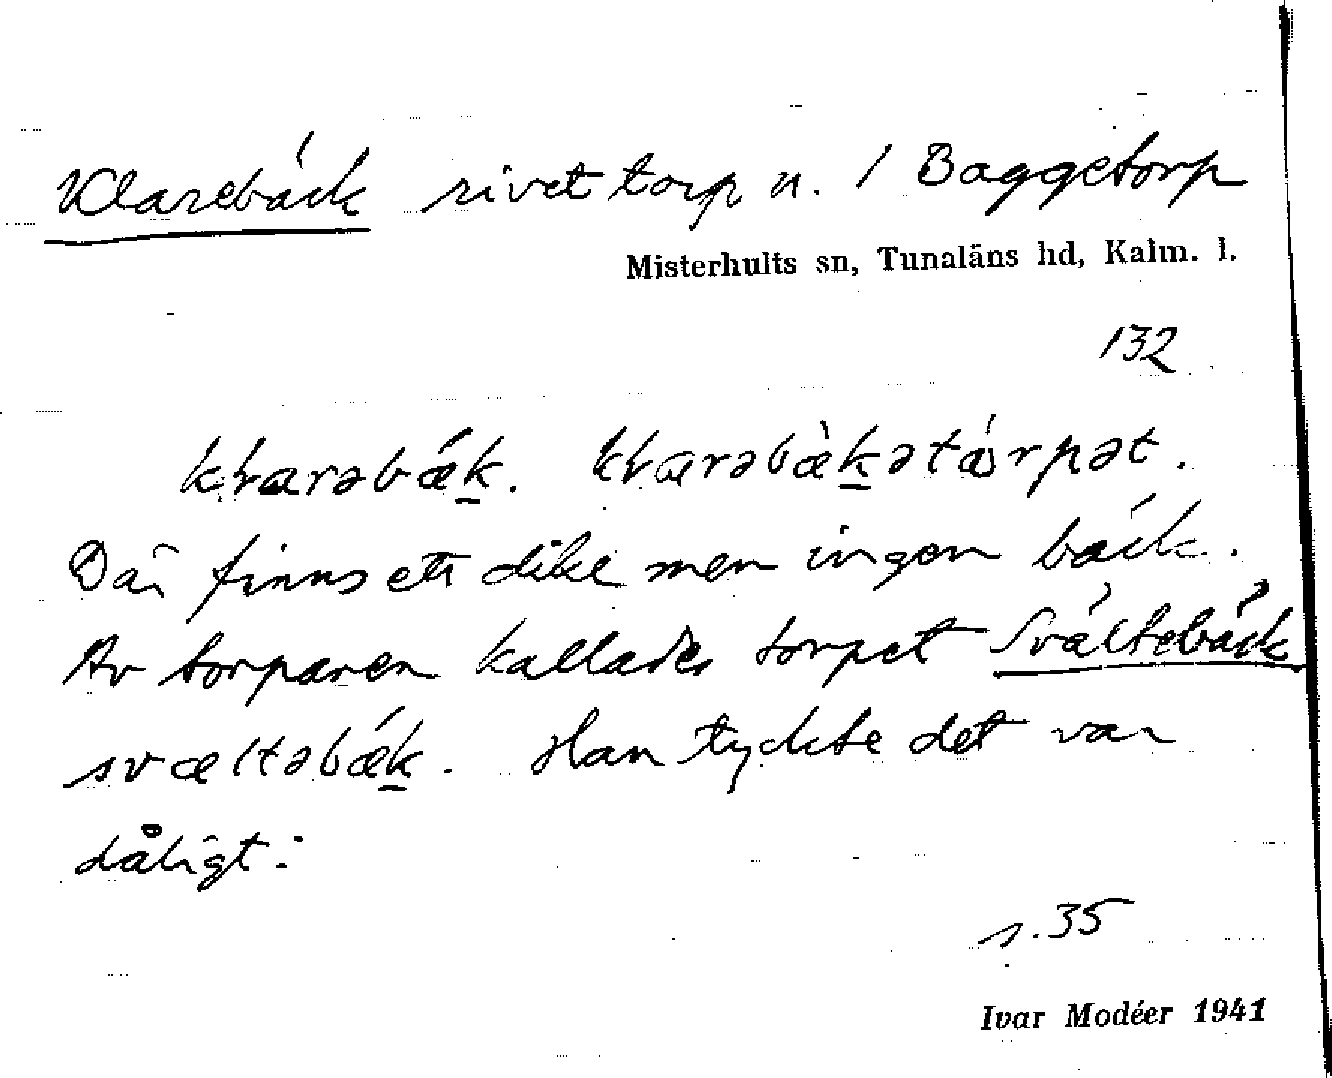 Klarebäck rivet torp u. / Baggetorp
Misterhults sn, Tunaläns hd, Kalm. l.
132
klarəbǽk. klarəbæ̀kətårpət.
Där finns ett dike men ingen bäck.
Av torparen kallades torpet Svältebäck
svæltəbǽk. Han tyckte det var
dåligt.
s. 35
Ivar Modéer 1941